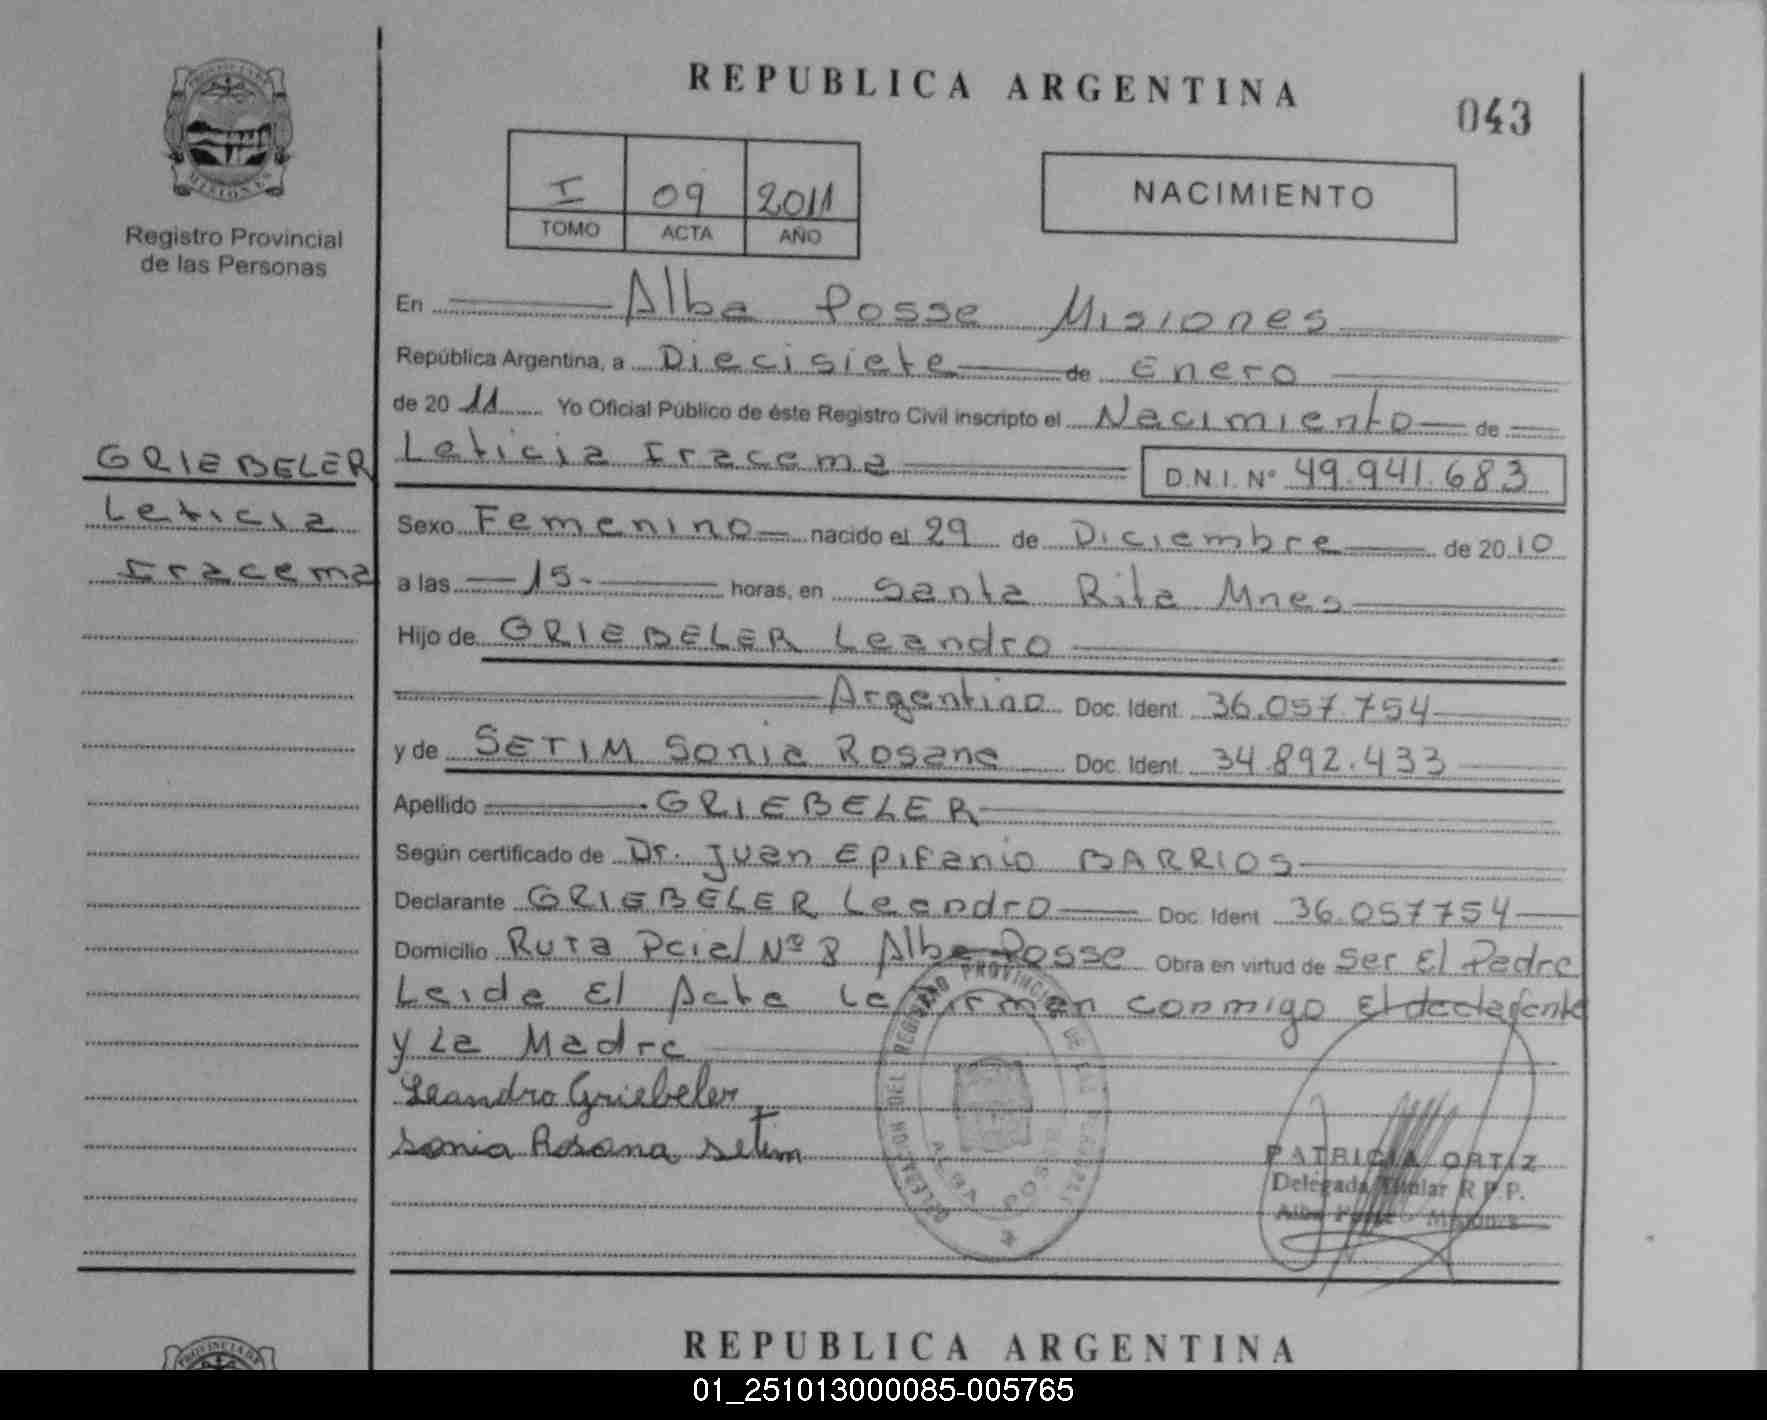 REPUBLICA ARGENTINA
043
PROVINCIA DE
MISIONES
Registro Provincial
de las Personas
I 09 2011
TOMO ACTA AÑO
NACIMIENTO
En Alba Posse Misiones
República Argentina, a Diecisiete de Enero
de 2011 Yo Oficial Público de éste Registro Civil inscripto el Nacimiento de
GRIEBELER
Leticia
Iracema
Leticia Iracema D.N.I. Nº 49.941.683
Sexo Femenino nacido el 29 de Diciembre de 2010
a las 15 horas, en Santa Rita Mnes
Hijo de GRIEBELER Leandro
Argentino Doc. Ident. 36.057.754
y de SETIM Sonia Rosana Doc. Ident. 34.892.433
Apellido GRIEBELER
Según certificado de Dr. Juan Epifanio BARRIOS
Declarante GRIEBELER Leandro Doc. Ident 36.057754
Domicilio Ruta Pcial Nº 8 Alba Posse Obra en virtud de Ser El Padre
Leida El Acta la firman conmigo El declarante
y La Madre
Leandro Griebeler
Sonia Rosana Setim
DELEGACION DEL REGISTRO PROVINCIAL DE LAS PERSONAS
ALBA POSSE
PATRICIA ORTIZ
Delegada Titular R.P.P.
Alba Posse Misiones
PROVINCIA DE
REPUBLICA ARGENTINA
01_251013000085-005765